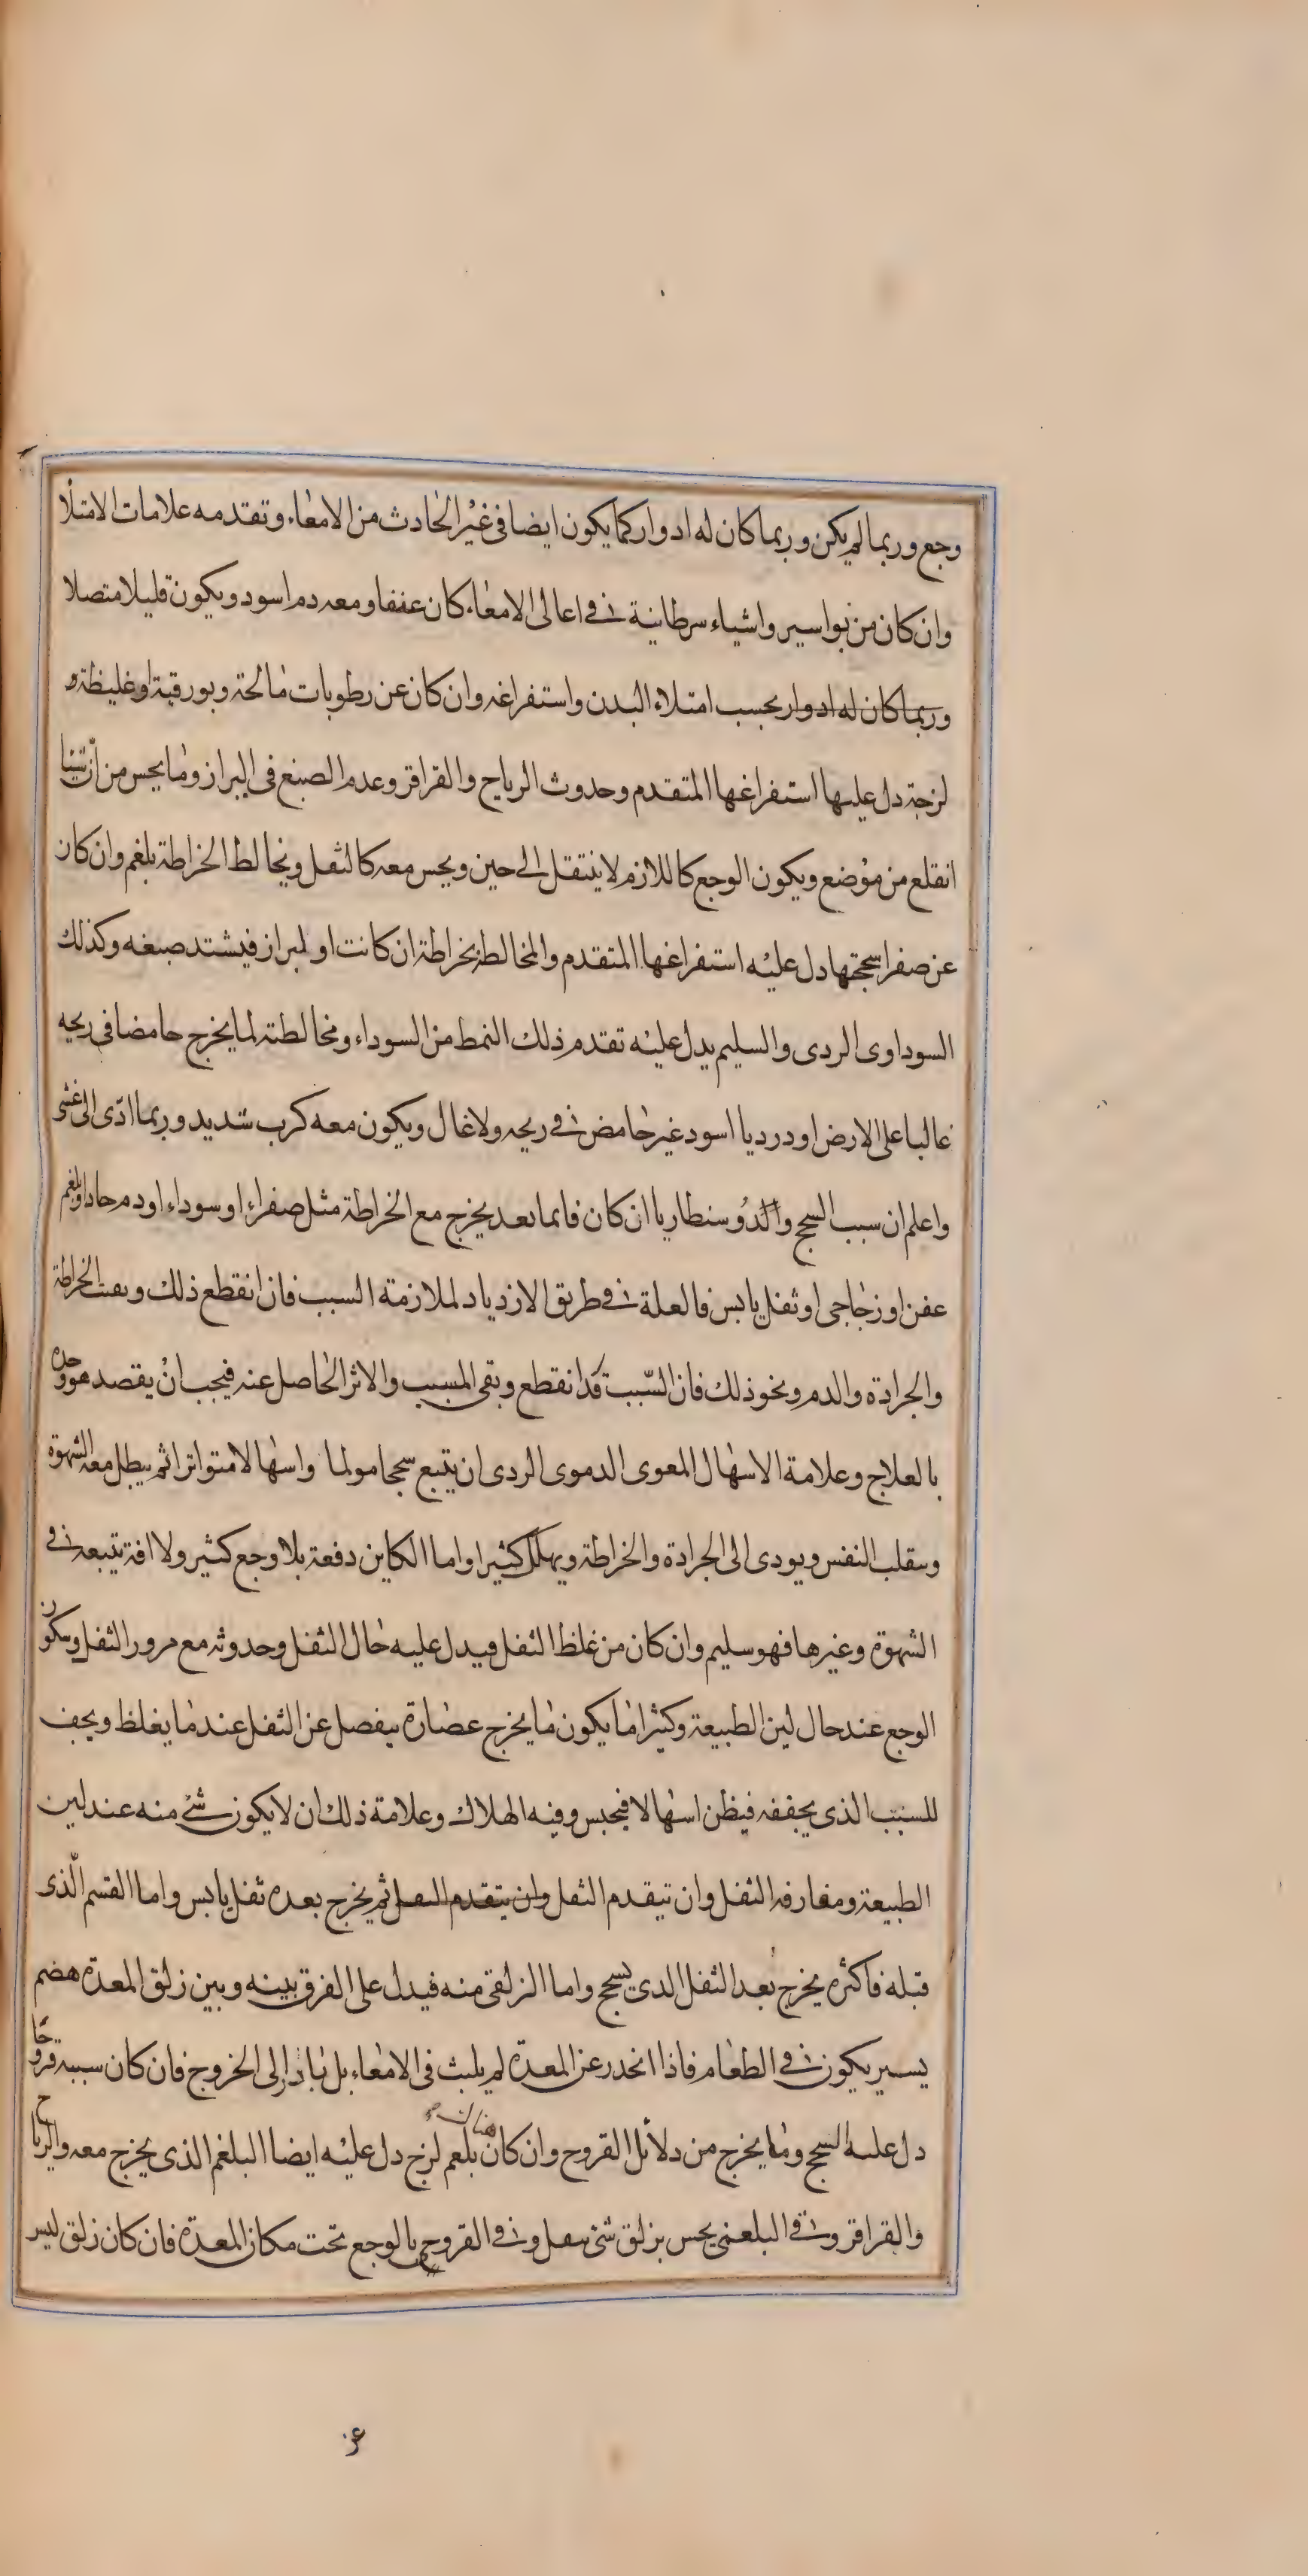 وجع وربما لم يكن وربما كان له ادوار كما يكون ايضا فى غير الحادث من الامعاء وتقدمه علامات الامتلا
وان كان من بواسير واشياء سرطانية فى اعالى الامعاء كان عفنا ومعه دم اسود ويكون قليلا متصلا
وربما كان له ادوار بحسب امتلاء البدن واستفراغه وان كان عن رطوبات مالحة وبورقية او غليظة و
لزجة دل عليها استفراغها المتقدم وحدوث الرياح والقراقر وعدم الصبغ فى البراز وما يحس من ان شيئا
انقلع من موضع ويكون الوجع كاللازم لا ينتقل الى حين ويحس معه كالثقل ويخالط الخراطة بلغم وان كان
عن صفرا سججتها دل عليه استفراغها المتقدم والمخالطة بخراطة ان كانت او لبراز فيشتد صبغه وكذلك
السوداوى الردى والسليم يدل عليه تقدم ذلك النمط من السوداء ومخالطته لما يخرج حامضا فى ريحه
غالبا على الارض او درديا اسود غير حامض فى ريحه ولا غال ويكون معه كرب شديد وربما ادّى الى غشى
واعلم ان سبب السحج والدوسنطاريا ان كان فانما بعد يخرج مع الخراطة مثل صفراء او سوداء او دم حاد او بلغم
عفن او زجاجى او ثفل يابس فالعلة فى طريق الازدياد لملازمة السبب فان انقطع ذلك وبقيت الخراطة
والجرادة والدم ونحو ذلك فان السّبب قد انقطع وبقى المسبب والاثر الحاصل عنه فيجب ان يقصد هو وحده
بالعلاج وعلامة الاسهال المعوى الدموى الردى ان يتبع سحجا مولما واسهالا متواترا ثم يبطل معه الشهوة
وينقلب النفس ويودى الى الجرادة والخراطة ويهلك كثيرا واما الكاين دفعة بلا وجع كثير ولا افة يتبعه فى
الشهوة وغيرها فهو سليم وان كان من غلظ الثفل فيدل عليه حال الثفل وحدوثه مع مرور الثفل وسكون
الوجع عند حال لين الطبيعة وكثيرا ما يكون ما يخرج عصارة ينفصل عن الثفل عند ما يغلظ ويجف
للسبب الذى يجففه فيظن اسهالا فيحبس وفيه الهلاك وعلامة ذلك ان لا يكون شئ منه عند لين
الطبيعة ومفارقه الثفل وان يتقدم الثفل وان يتقدم الثفل ثم يخرج بعده ثفل يابس واما القسم الّذى
قبله فاكثره يخرج بعد الثفل الذى يسحج واما الزلقى منه فيدل على الفرق بينه وبين زلق المعدة هضم
يسير يكون فى الطعام فاذا انحدر عن المعدة لم يلبث فى الامعاء بل بادر الى الخروج فان كان سببه قروحا
دل عليه السحج وما يخرج من دلائل القروح وان كان بلغم لزج دل عليه ايضا البلغم الذى يخرج معه والرياح
والقراقر وفى البلغمى يحس بزلق شئ ثقيل وفى القروحى بالوجع تحت مكان المعدة فان كان زلق ليس